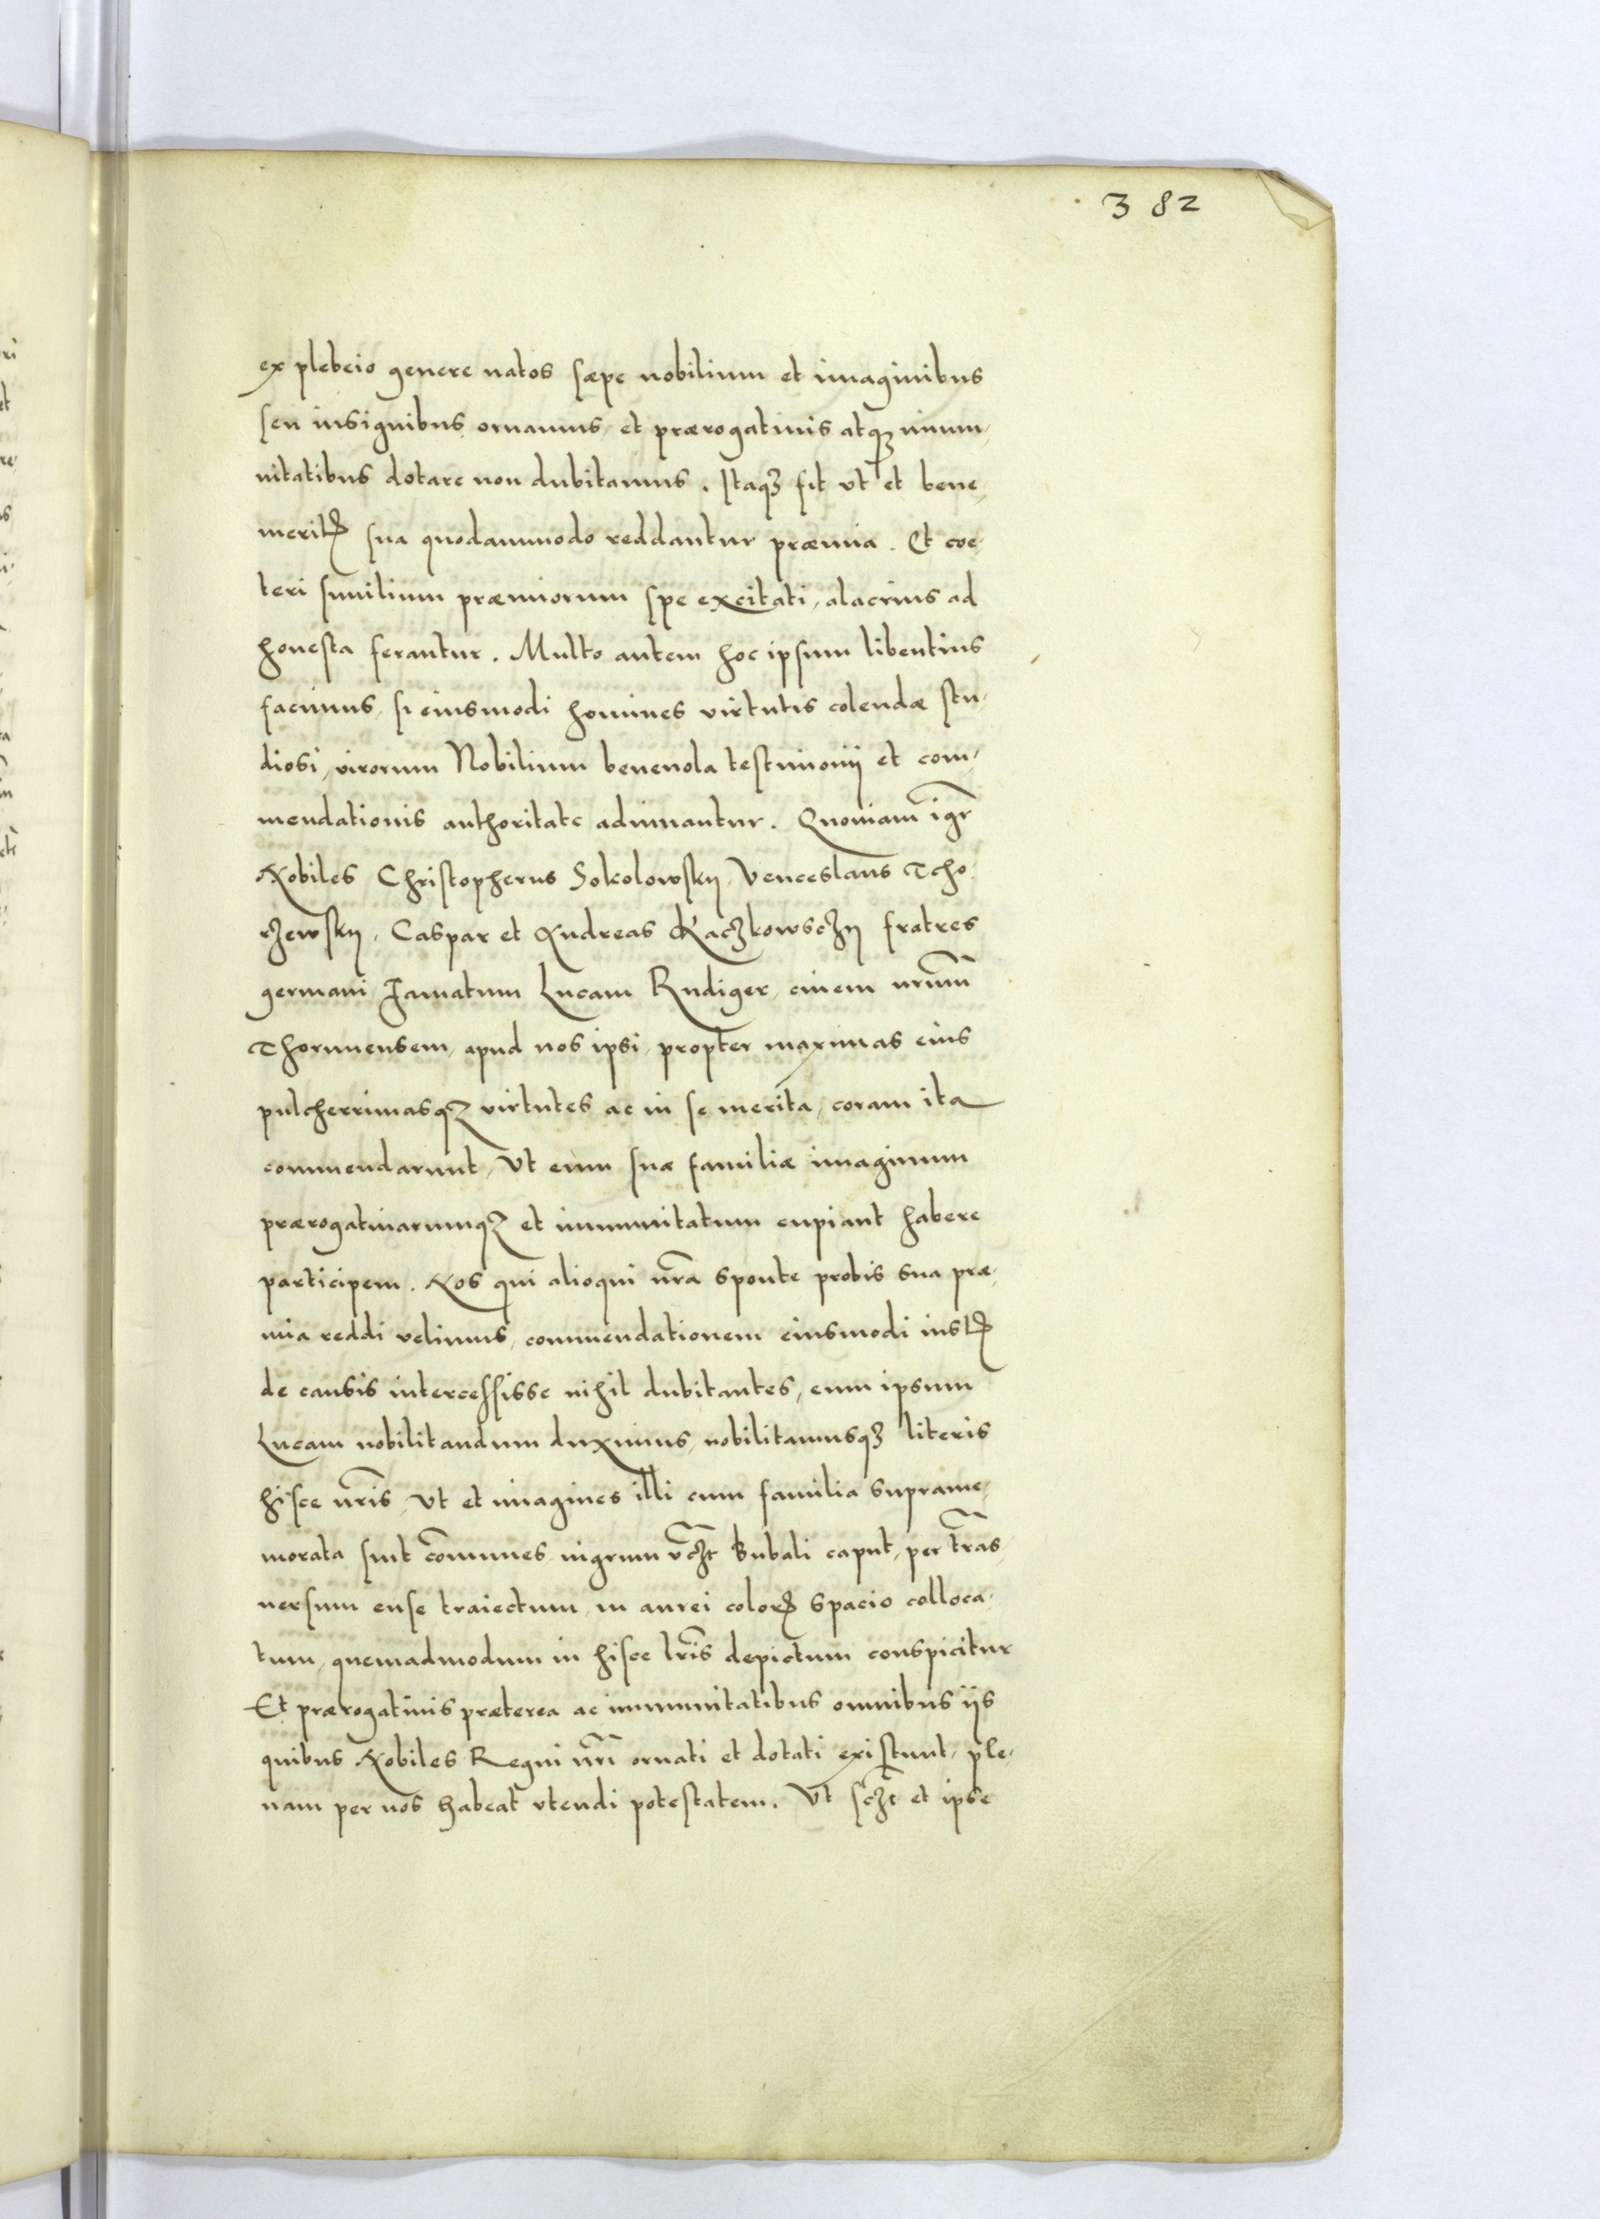 382
ex plebeio genere natos sæpe nobilium et imaginibus
seu insignibus ornamus, et prærogatiuis atqꝫ immu-
nitatibus dotare non dubitamus. Itaqꝫ fit vt et bene
meritꝭ sua quodammodo reddantur præmia. Et cœ-
teri similium præmiorum spe excitati, alacrius ad
honesta ferantur. Multo autem hoc ipsum libentius
facimus, si eiusmodi homines virtutis colendæ stu-
diosi, virorum Nobilium beneuola testimonij et com-
mendationis authoritate adiuuantur. Quoniam igr̃
Nobiles Christopherus Sokolowskij, Venceslaus Tcho-
rzewskij, Caspar et Andreas Kaczkowsczij fratres
germani Famatum Lucam Rudiger, ciuem nr̃um
Thorunensem, apud nos ipsi, propter maximas eius
pulcherrimasqꝫ virtutes ac in se merita, coram ita
commendarunt, Vt eum suæ familiæ imaginum
prærogatiuarumqꝫ et immunitatum cupiant habere
participem. Nos qui alioqui nr̃a sponte probis sua præ-
mia reddi velimus, commendationem eiusmodi iustꝭ
de causis intercessisse nihil dubitantes, eum ipsum
Lucam nobilitandum duximus, nobilitamusqꝫ literis
hisce nr̃is, Vt et imagines illi cum familia suprame-
morata sint com̃unes, nigrum vczt Bubali caput, per trãs-
uersum ense traiectum, in aurei colorꝭ spacio colloca-
tum, quemadmodum in hisce lr̃is depictum conspicitur
Et prærogatiuis præterea ac immunitatibus omnibus ijs
quibus Nobiles Regni nr̃i ornati et dotati existunt, ple-
nam per nos habeat vtendi potestatem. Vt sczt et ipse